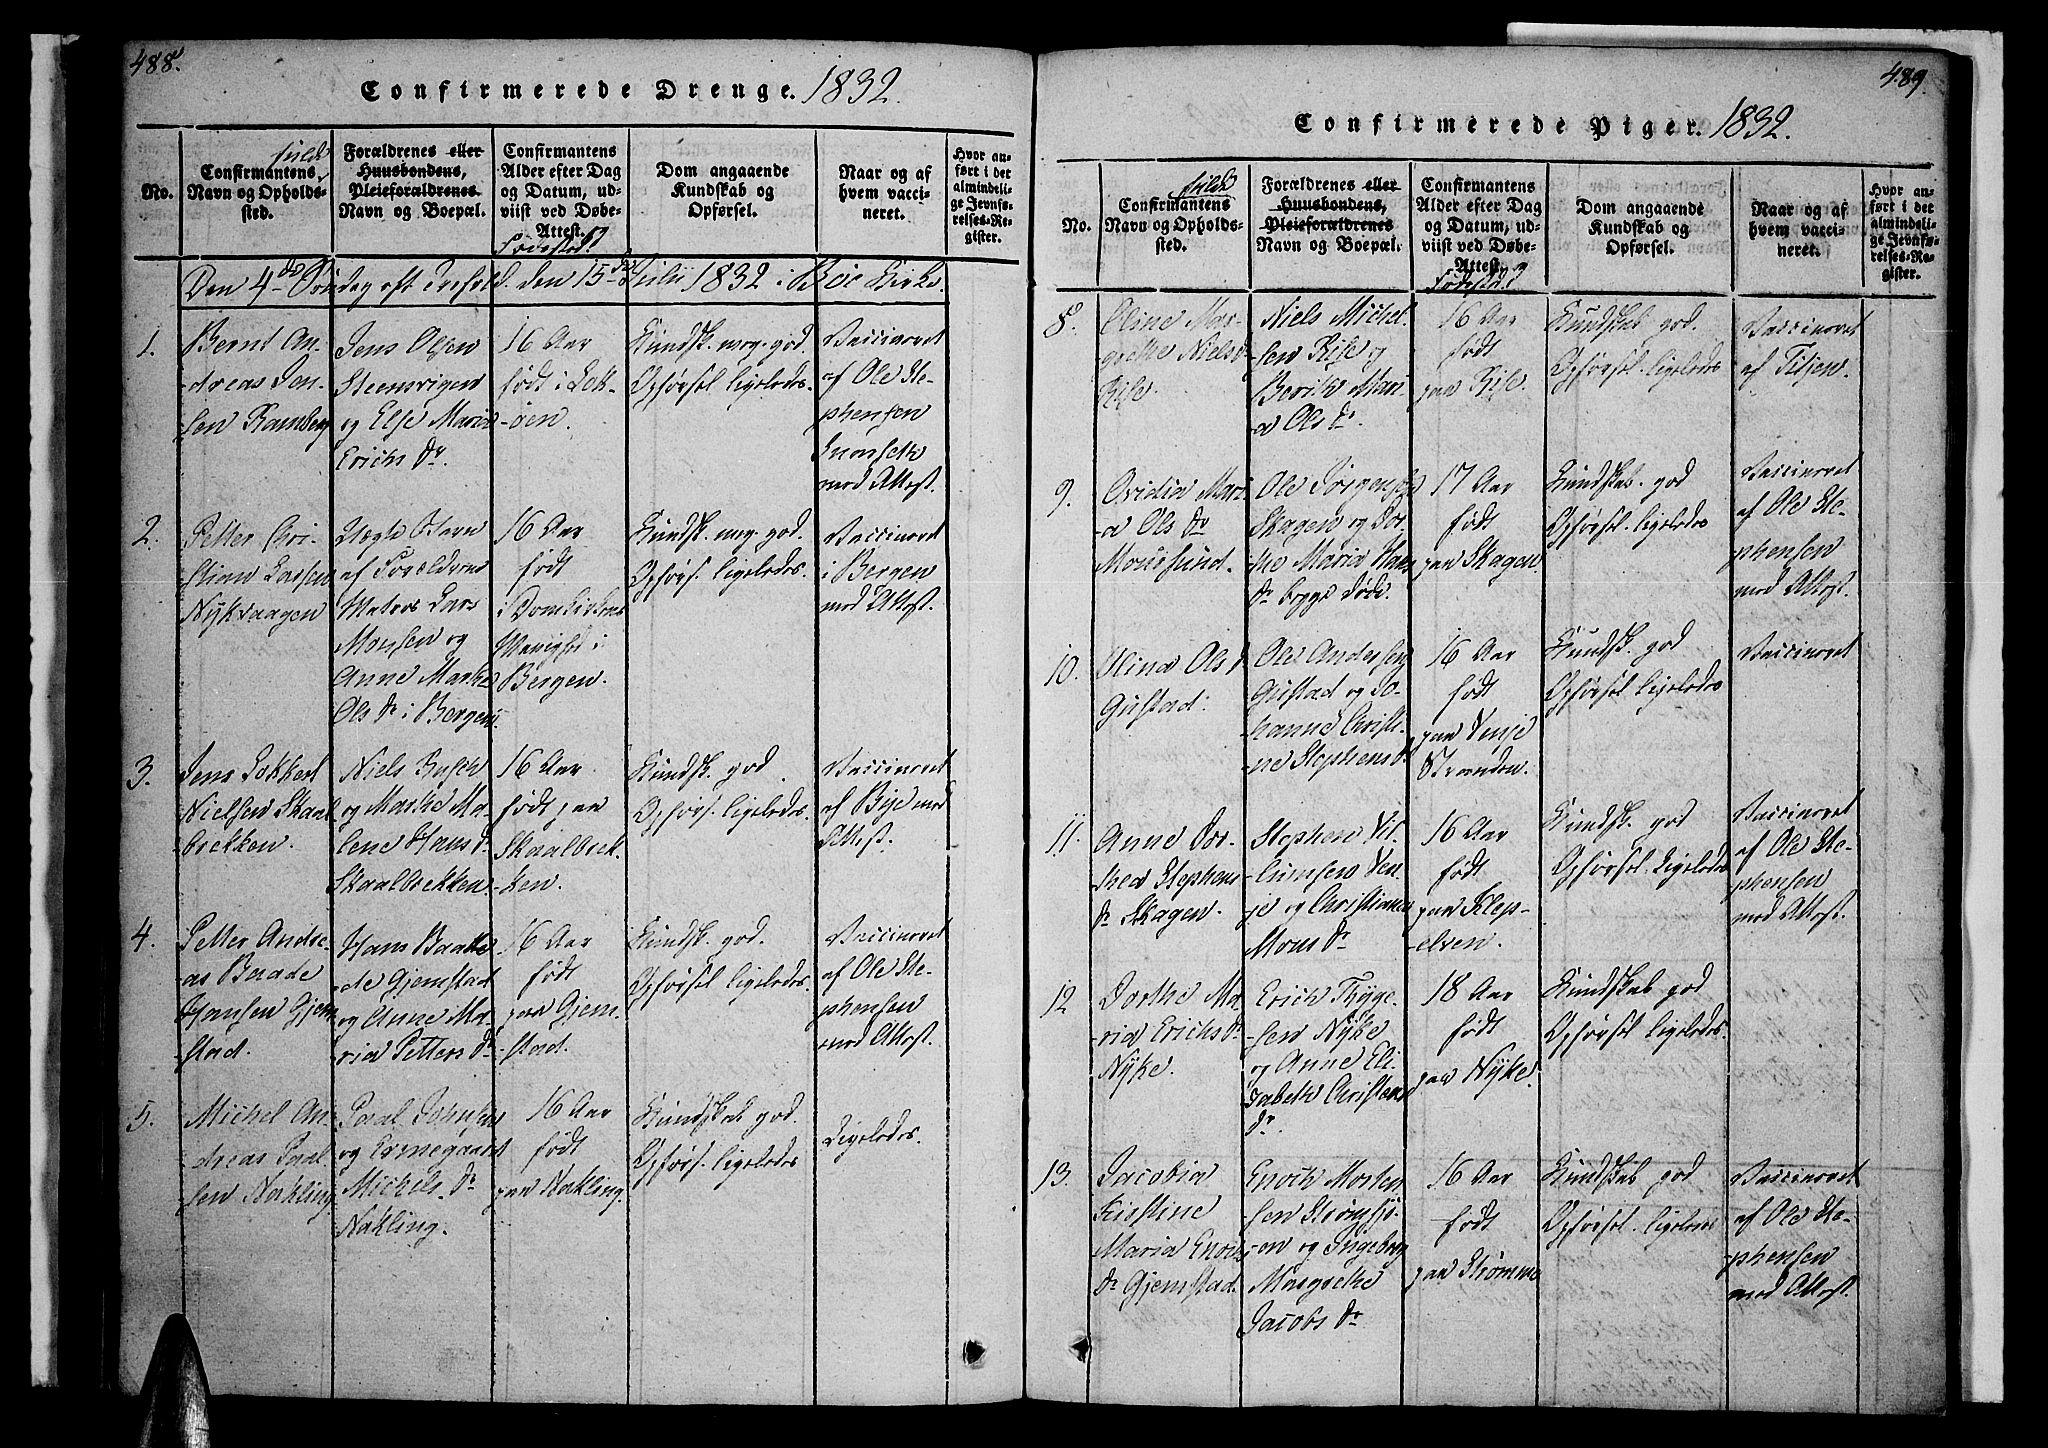 488.
Confirmerede Drenge. 1832.
No.
fulde
Confirmantens
Navn og Opholds-
sted.
Forældrenes eller
Huusbondens,
Pleieforældrenes
Navn og Boepæl.
Confirmantens
Alder efter Dag
og Datum, ud-
viist ved Døbe-
Attest.
Fødested?
Dom angaaende
Kundskab og
Opførsel.
Naar og af
hvem vacci-
neret.
Hvor an-
ført i det
almindeli-
ge Jevnfø-
relses-Re-
gister.
Den 4de Søndag eft Trefold. den 15de Julii 1832 i Böe Kirke.
1.
Bernt An-
dreas Jen-
sen Ramberg
Jens Olsen
Steensvigen
og Else Maria
Erichs Dr.
16 Aar
født i Lek-
-øen.
Kundsk. meg. god.
Opførsel ligeledes.
Vaccineret
af Ole Ste-
phensen
med Attest.
2.
Petter Chri-
stian Larsen
Nykvaagen
Uægte Barn
af Forældrene
Matros Lars
Monsen og
Anne Marthe
Ols Dr i Bergen
16 Aar
født
i Domkirkens
Menighed i
Bergen.
Kundsk. meg. god.
Opførs. ligeledes.
Vaccineret
i Bergen
med Attest.
3.
Jens Lokkert
Nielsen Skaal-
brekken.
Niels Busch
og Marthe Ma-
lene Hans Dr
Skaalbrekken
16 Aar.
født paa
Skaalbrek-
ken.
Kundsk. god.
Opførs. ligeledes.
Vaccineret
af Bye med
Attest.
4.
Petter Andre-
as Baade
Hansen Gjem-
stad.
Hans Baade
Gjemstad
og Anne Ma-
ria Petters Dr
16 Aar
født
paa Gjem-
stad.
Kundsk. god.
Opførsel ligeledes.
Vaccineret
af Ole Ste-
phensen
med Attest.
5.
Michel An-
dreas Paal-
sen Nakling
Paal Johnsen
og Ermegaard
Michels Dr
Nakling.
16 Aar
født
paa Nakling.
Kundskab god.
Opførs. ligeledes
Ligeledes.
489.
Confirmerede Piger. 1832.
No.
fulde
Confirmantens
Navn og Opholds-
sted.
Forældrenes eller
Huusbondens,
Pleieforældrenes
Navn og Boepæl.
Confirmantens
Alder efter Dag
og Datum, ud-
viist ved Døbe-
Attest.
Fødested?
Dom angaaende
Kundskab og
Opførsel.
Naar og af
hvem vacci-
neret.
Hvor an-
ført i det
almindeli-
ge Jevnfø-
relses-Re-
gister.
8.
Oline Mar-
grethe Nielsdr
Rise.
Niels Michel-
sen Rise og
Berith Mari-
a Ols Dr.
16 Aar
født
paa Rise.
Kundskab god.
Opførsel ligeledes
Vaccineret
af Titjen.
9.
Ovidia Mari-
a Ols Dr
Mouesund.
Ole Jørgensen
Skagen og Dor-
the Maria Hans
Dr begge døde.
17 Aar
født
paa Skagen.
Kundskab. god
Opførsel. ligeledes
Vaccineret
af Ole Ste-
phensen
med Attest.
10.
Olina Ols Dr
Gustad.
Ole Andersen
Gustad og Jo-
hanne Christi-
ne Stephens Dr
16 Aar
født
paa Venje
Stranden.
Kundsk. god
Opførsel ligeledes
Vaccineret
11.
Anne Dor-
thea Stephens
Dr Skagen.
Stephen Vil-
lumsen Ven-
je og Christiane
Mons Dr
16 Aar
født
paa Klep-
elven.
Kundsk. god
Opførsel. Ligeledes
Vaccineret
af Ole Ste-
phensen
med Attest.
12
Dorthe Ma-
ria Erichs Dr
Nyke.
Erich Thyge-
sen Nyke
og Anne Eli-
sabeth Christens
Dr.
18 Aar
født
paa Nyke.
Kundskab god
Opførsel ligeledes.
13.
Jacobia
Kiestine
Maria Enochs
Dr Gjemstad.
Enoch Morten-
sen Strømsjø-
en og Ingeborg
Margrethe
Jacobs Dr
16 Aar
født
paa Strømme
Kundskab god
Opførsel. ligeledes
Vaccineret
af Ole Ste-
phensen
med Attest.